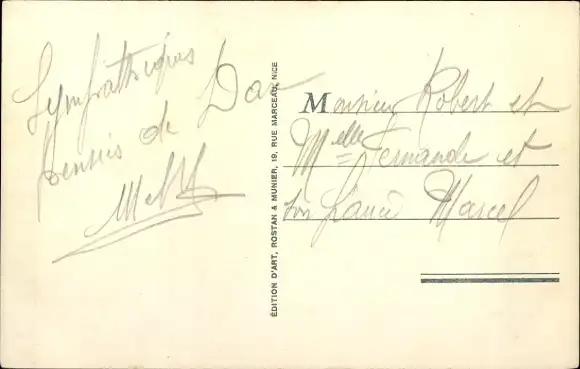 Sympathiques
pensées de Dax
ÉDITION D'ART, ROSTAN & MUNIER, 19, RUE MARCEAU, NICE
Monsieur Robert et
Melle Fernande et
son fiancé Marcel